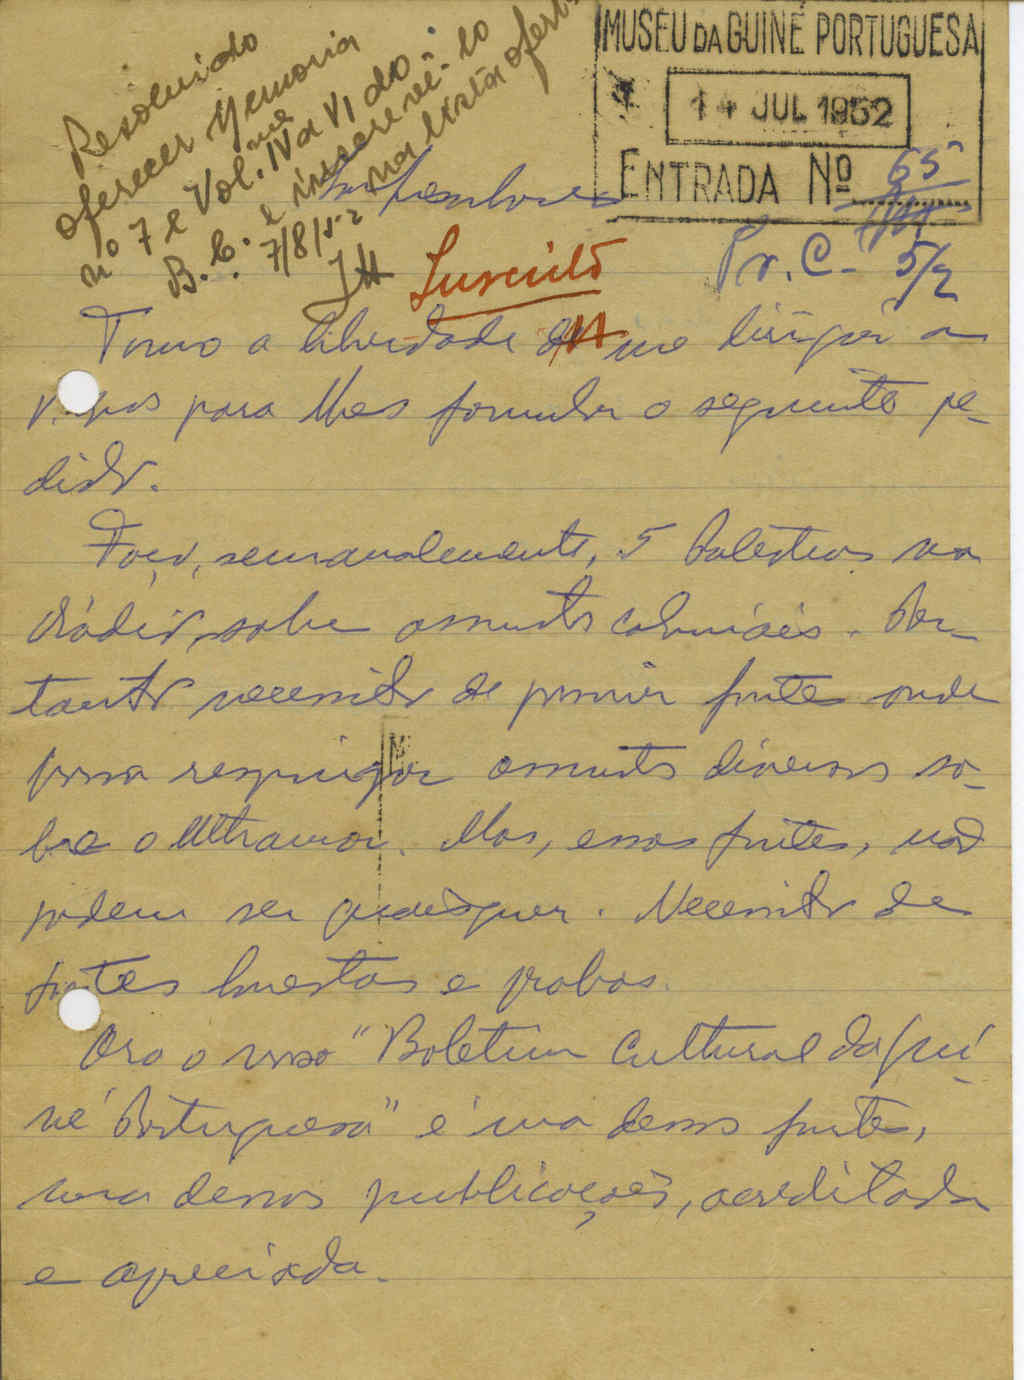 Resolvido
oferecer Memoria
nº 7 e Vol. IV a VI do
B. C. e inscrevê-lo
na lista ofertas
7/8/52
MUSEU DA GUINÉ PORTUGUESA
14 JUL 1952
ENTRADA Nº 65
Pr. C - 5/2
Senhores
Inscrito
Tomo a liberdade de me dirigir a
V. para lhes formular o seguinte pe-
dido.
Faço, semanalmente, 5 palestras na
rádio, sobre assuntos coloniais. Por-
tanto necessito de possuir fontes onde
possa respigar assuntos diversos so-
bre o Ultramar. Mas, essas fontes, não
podem ser quaisquer. Necessito de
fontes honestas e probas.
Ora o vosso "Boletim Cultural da Gui-
né Portuguesa" é uma dessas fontes,
uma dessas publicações, acreditada
e apreciada.